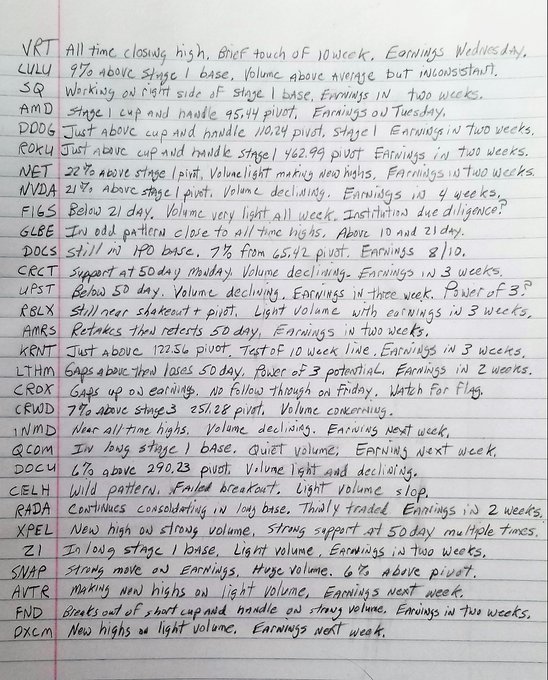 VRT All time closing high. Brief touch of 10 week. Earnings Wednesday.
LULU 9% above Stage 1 base. Volume above average but inconsistant.
SQ Working on right side of stage 1 base. Earnings in two weeks.
AMD Stage 1 cup and handle 95.44 pivot. Earnings on Tuesday.
DDOG Just above cup and handle 110.24 pivot. Stage 1 Earnings in two weeks.
ROKU Just above cup and handle stage 1 462.99 pivot Earnings in two weeks.
NET 22% above stage 1 pivot. Volume light making new highs. Earnings in two weeks.
NVDA 21% above stage 1 pivot. Volume declining. Earnings in 4 weeks.
FIGS Below 21 day. Volume very light all week. Institution due diligence?
GLBE In odd pattern close to all time highs. Above 10 and 21 day.
DOCS Still in IPO base. 7% from 65.42 pivot. Earnings 8/10.
CRCT Support at 50 day Monday. Volume declining. Earnings in 3 weeks.
UPST Below 50 day. Volume declining. Earnings in three week. Power of 3?
RBLX Still near shakeout + pivot. Light volume with earnings in 3 weeks.
AMRS Retakes then retests 50 day. Earnings in two weeks.
KRNT Just above 122.56 pivot. Test of 10 week line. Earnings in 3 weeks.
LTHM Gaps above then loses 50 day. Power of 3 potential. Earnings in 2 weeks.
CROX Gaps up on earnings. No follow through on Friday. Watch for flag.
CRWD 7% above stage 3 251.28 pivot. Volume concerning.
INMD Near all time highs. Volume declining. Earning next week.
QCOM In long stage 1 base. Quiet volume. Earning next week.
DOCU 6% above 290.23 pivot. Volume light and declining.
CELH Wild pattern. Failed breakout. Light volume slop.
RADA Continues consolidating in long base. Thinly traded Earnings in 2 weeks.
XPEL New high on strong volume. Strong support at 50 day multiple times.
ZI In long stage 1 base. Light volume. Earnings in two weeks.
SNAP Strong move on Earnings. Huge volume. 6% above pivot.
AVTR Making new highs on light volume. Earnings next week.
FND Breaks out of short cup and handle on strong volume. Earnings in two weeks.
DXCM New highs on light volume. Earnings next week.